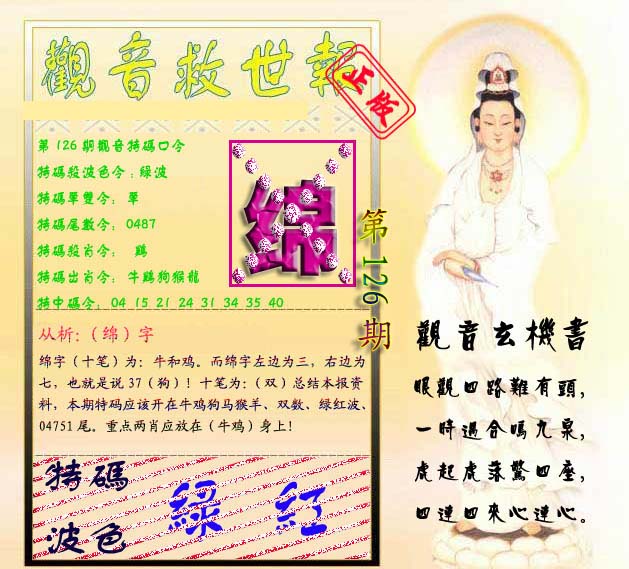 觀音救世報
正版
第126期觀音特碼口令
特碼殺波色令：綠波
特碼單雙令：單
特碼尾數令：0487
特碼殺肖令：鷄
特碼出肖令：牛鷄狗猴龍
特中碼令：04 15 21 24 31 34 35 40
绵
第126期
从析:（绵）字
绵字（十笔）为：牛和鸡。而绵字左边为三，右边为
七，也就是说 37（狗）！十笔为：（双）总结本报资
料，本期特码应该开在牛鸡狗马猴羊、双数、绿红波、
04751 尾。重点两肖应放在（牛鸡）身上！
特碼
波色
綠 紅
觀音玄機書
眼觀四路難有頭，
一時適合鳴九泉，
虎起虎落驚四座，
四連四來心連心。